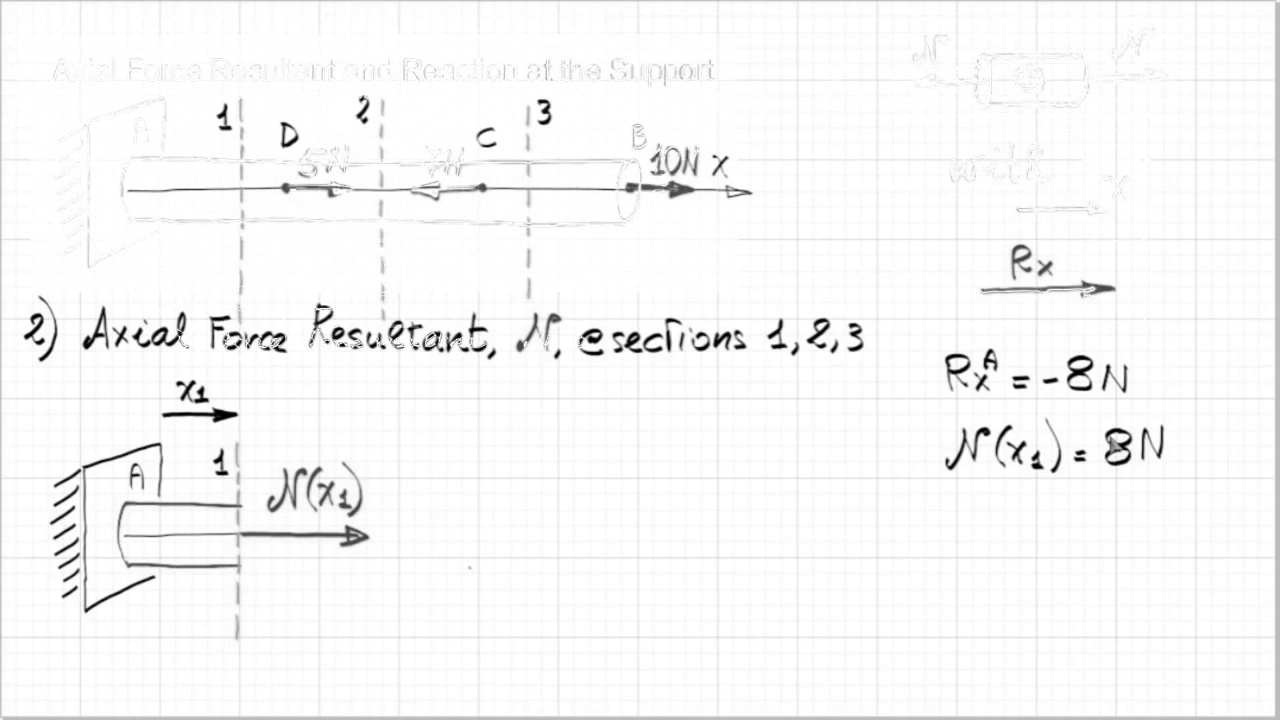 Axial Force Resultant and Reaction at the Support
N N
1 2 3
A D C B
5N 7N 10N x
with
x
Rx
2) Axial Force Resultant, N, @sections 1,2,3
x1
Rx^A = -8N
N(x1) = 8N
A 1 N(x1)